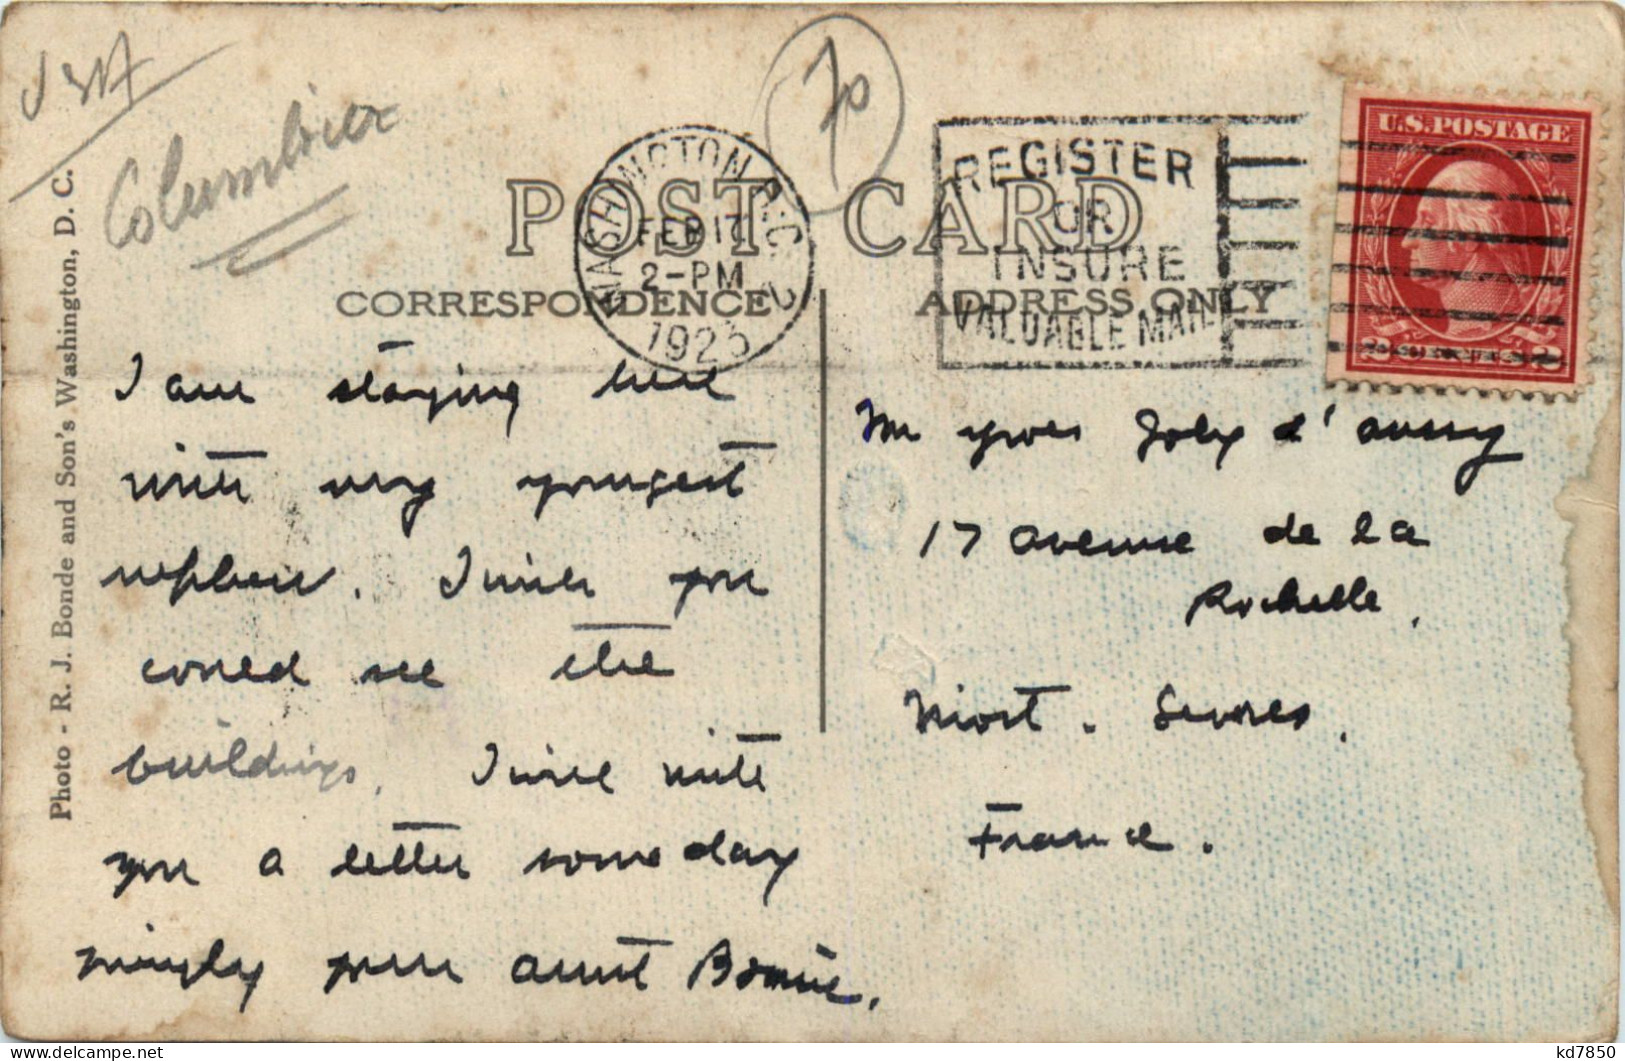 USA
Columbia
70
POST CARD
CORRESPONDENCE
ADDRESS ONLY
WASHINGTON D.C.
FEB 17
2-PM
1923
REGISTER
OR
INSURE
VALUABLE MAIL
U.S. POSTAGE
Photo - R. J. Bonde and Son's Washington, D. C.
I am staying here
with my youngest
nephew. I wish you
could see the
buildings. I will write
you a letter some day
your aunt
Mr Yves Joly d'
17 avenue de la
Rochelle,
Niort. Sevres,
France.
kd7850